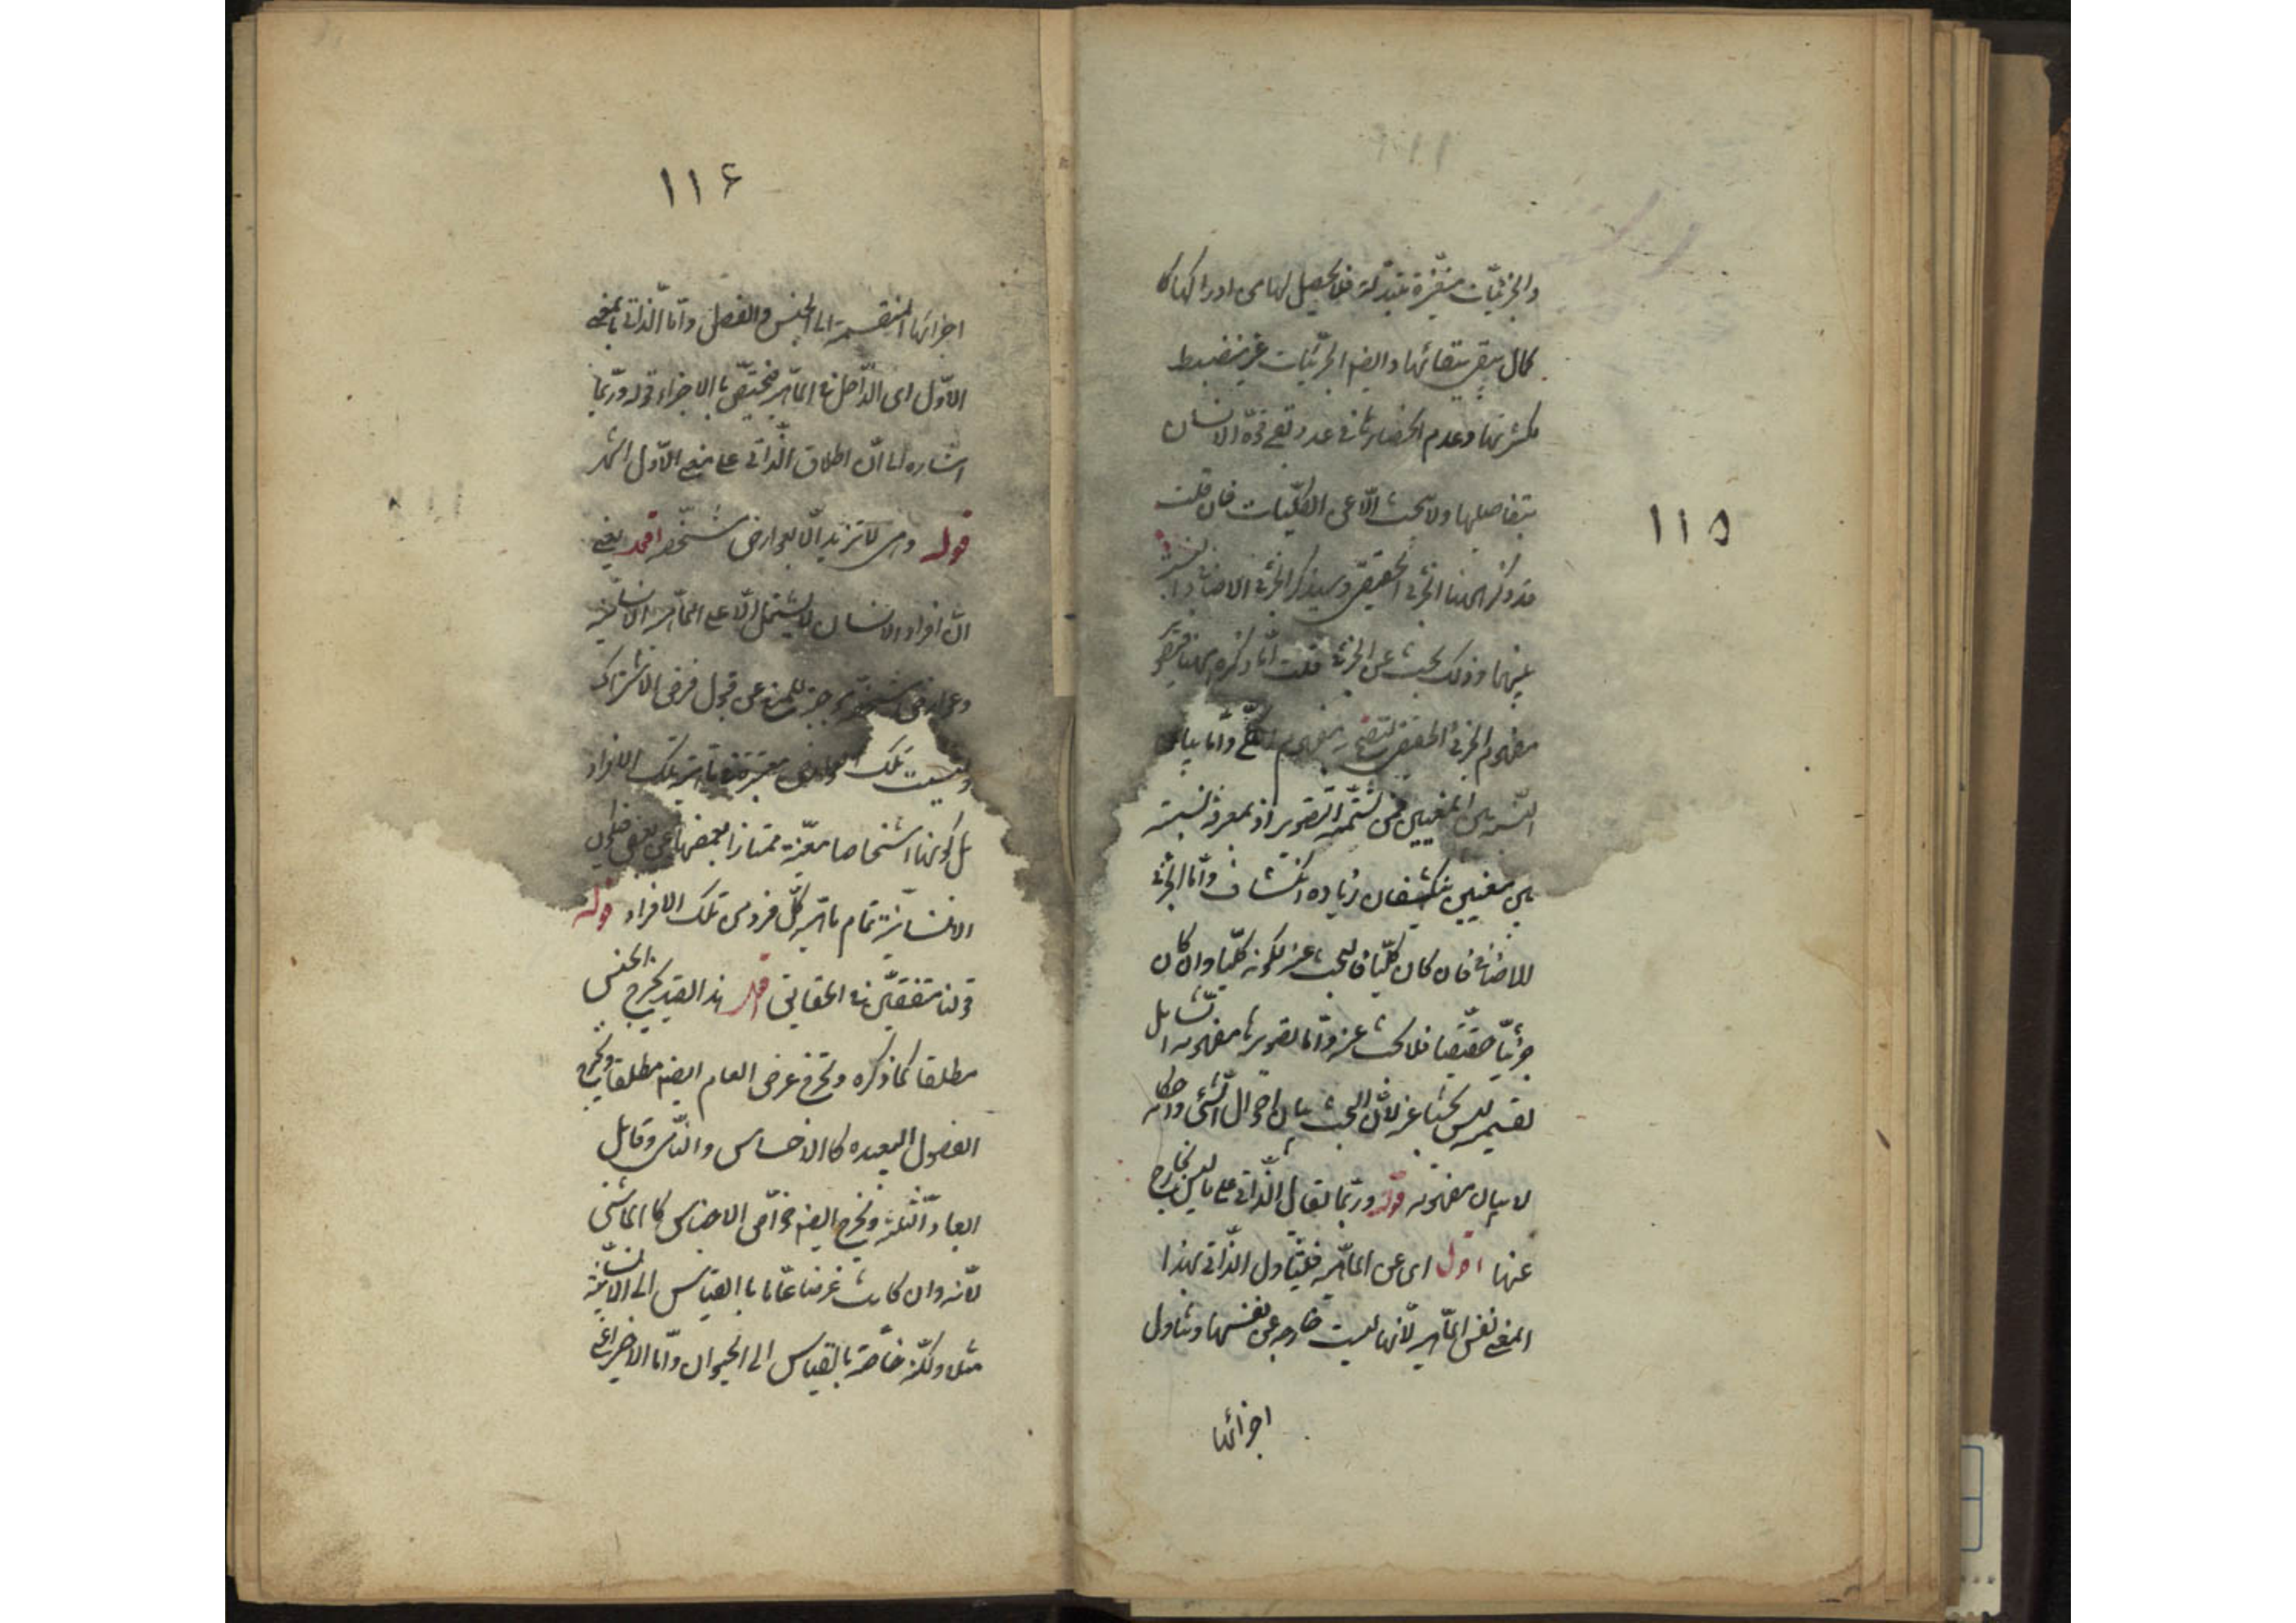 والجزئيّات متغيّرة متبدّلة فلا يحصل لها من ادراكها
كمال يبقى ببقائها وايضا الجزئيّات غير منضبطه
لكثرتها وعدم انحصارها في عدد تفى قوّة الانسان
بتفاصيلها ولا يبحث الّا عن الكلّيات فان قلت
قد ذكر ههنا الجزئى الحقيقى وسيذكر الجزئى الاضافى والنسبة
بينهما وذلك بحث عن الجزئى قلت امّا ذكره ههنا فتصوير
مفهوم الجزئى الحقيقى مفهوم الكلّى وامّا بيان
النّسبة بين المعنيين فمن تتمّة التّصوير اذ بمعرفة نسبته
بين معنيين ينكشفان زياده انكشاف وامّا الجزئى
الاضافى فان كان كلّيّا فالبحث عنه لكونه كلّيّا وان كان
جزئيّا حقيقيّا فلا بحث عنه وامّا تصوير مفهومه
فليس بحثا عنه لانّ البحث بيان احوال الشّئ واحكامه
لا بيان مفهومه قوله وربّما يقال الذّاتى على ما ليس بخارج
عنها اقول اى عن الماهيّة فيتناول الذّاتى بهذا
المعنى نفس الماهيّة لانّها ليست خارجه عن نفسها ويتناول
اجزائها
١١٥
١١۶
اجزائها المنقسمة الى الجنس والفصل وامّا الذّاتى بالمعنى
الاوّل اى الدّاخل في الماهيّة فيختصّ بالاجزاء قوله وربّما
اشاره الى انّ اطلاق الذّاتى على معنى الاوّل اشهر
قوله وهى لا تزيد الّا بعوارض مشخّصه اقول يعنى
انّ افراد الانسان لا يشتمل الّا على الماهيّة الانسانيّة
وعوارض مشخّصة موجبة للمنع عن قبول فرض الاشتراك
وليست تلك العوارض معتبرة في ماهيّة تلك الافراد
بل كونها اشخاصا معيّنة ممتازا بعضها عن بعض فيكون
الانسانيّة تمام ماهيّة كلّ فرد من تلك الافراد قوله
قولنا متفقين في الحقايق اقول هذا القيد يخرج الجنس
مطلقا كما ذكره ويخرج عرض العام ايضا مطلقا ويخرج
الفصول البعيده كالاحساس والنّامى وقابل
الابعاد الثّلثة ويخرج ايضا خواصّ الاجناس كالماشى
لانّه وان كانت عرضا عامّا بالقياس الى الانسانيّة
مثلا ولكنّه خاصّة بالقياس الى الحيوان وامّا الاخير اعنى